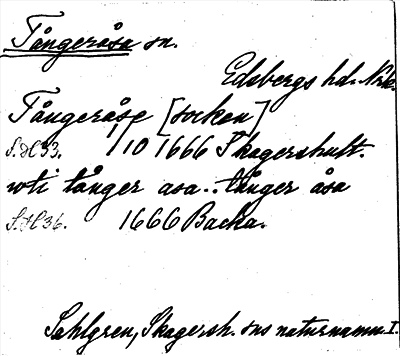 Tångeråsa sn.
Edsbergs hd. Nrk.
Tångeråse [socken]
S. dH 33. 1/10 1666 Skagershult.
wti tånger asa.. tånger åsa
S. dH 36. 1666 Backa.
Sahlgren, Skagersh. sns naturnamn I.